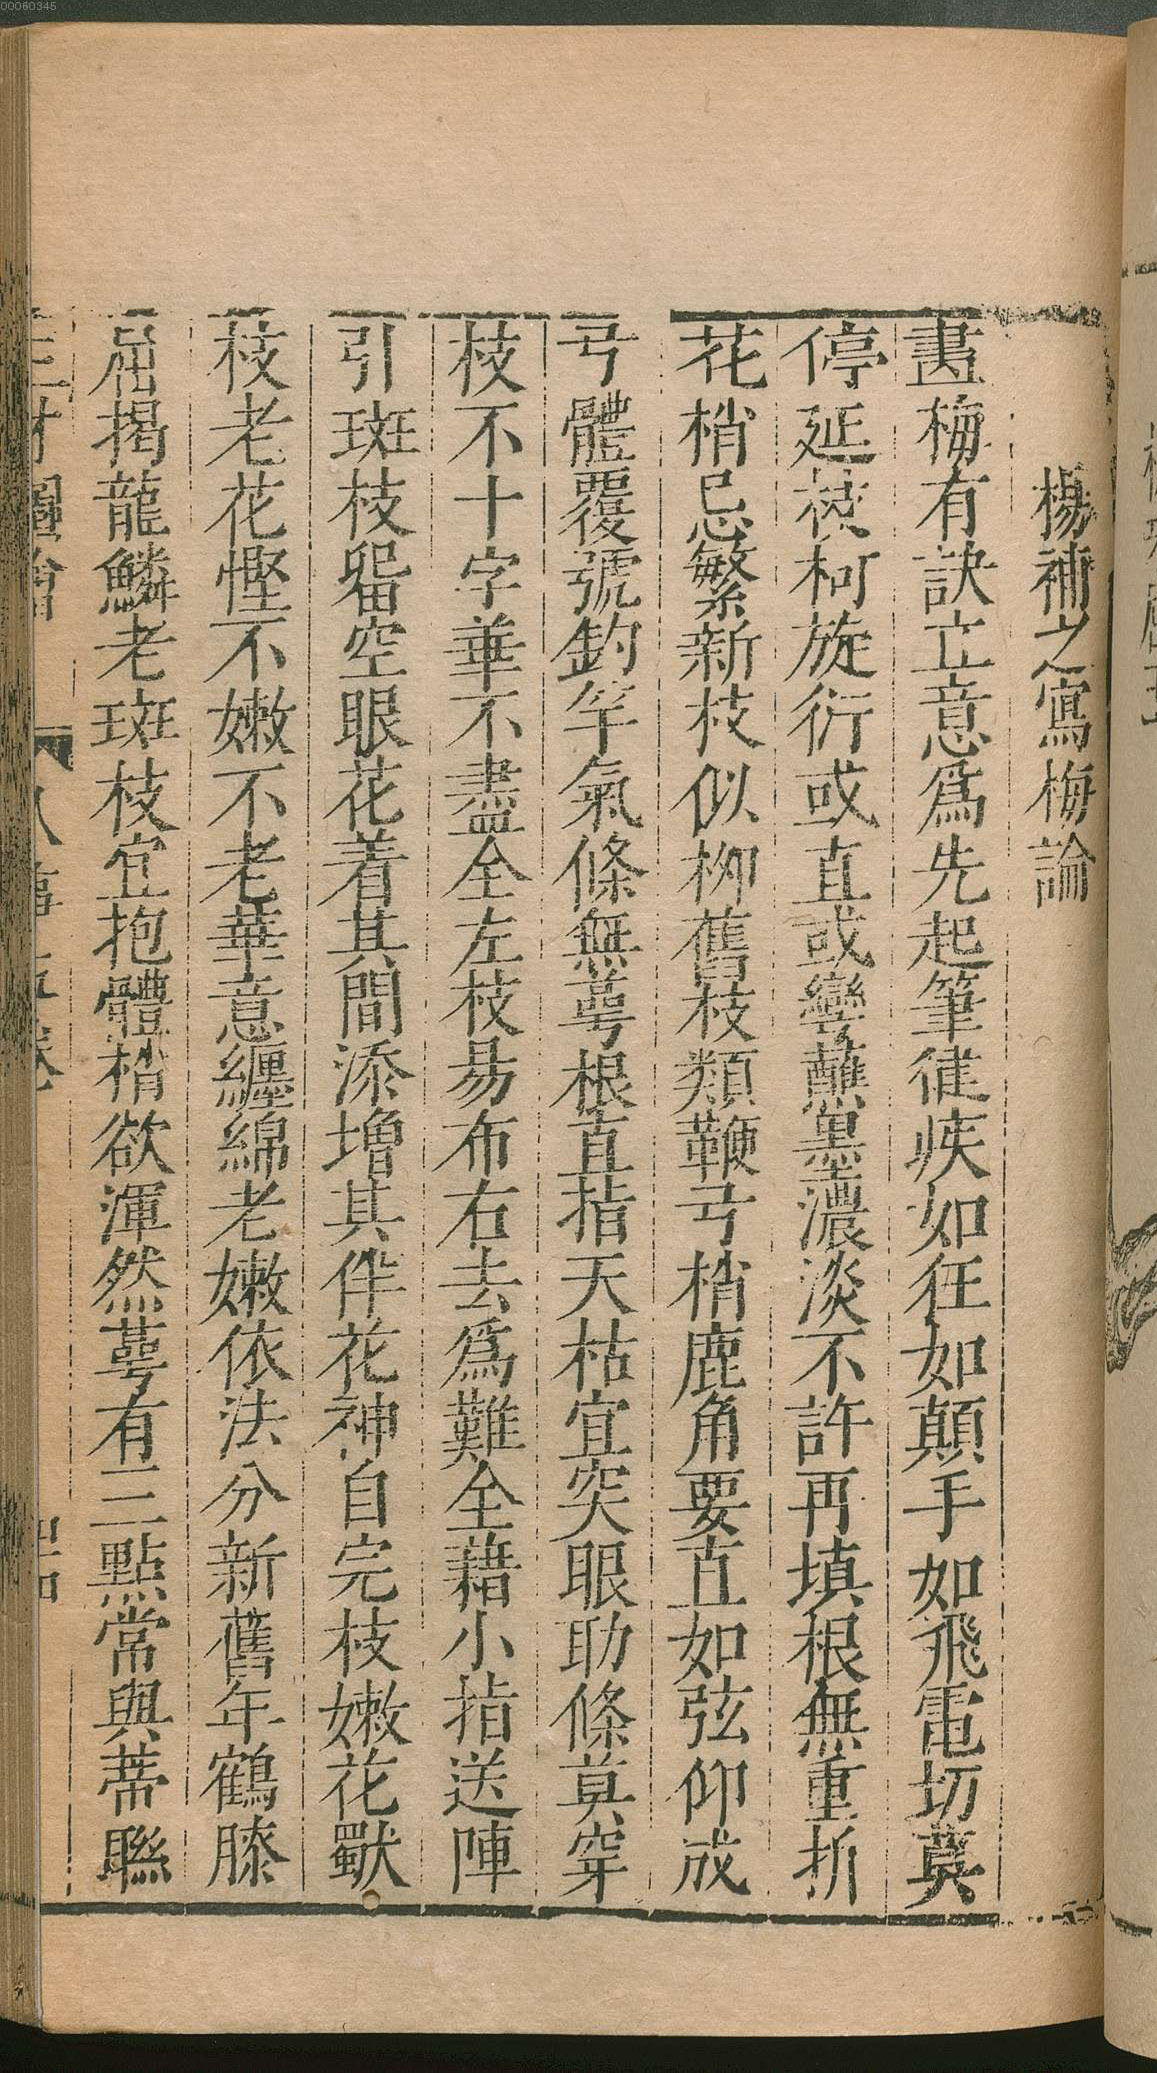 00060345
楊補之寫梅論
畫梅有訣立意爲先起筆健疾如狂如顛手如飛電切莫
停延枝柯旋衍或直或彎蘸墨濃淡不許再填根無重折
花梢忌繁新枝似柳舊枝類鞭弓梢鹿角要直如弦仰成
弓體覆號釣竿氣條無萼根直指天枯宜突眼助條莫穿
枝不十字華不盡全左枝易布右去爲難全藉小指送陣
引斑枝留空眼花着其間添增其伴花神自完枝嫩花獸
枝老花慳不嫩不老華意纏綿老嫩依法分新舊年鶴膝
屈揭龍鱗老斑枝宜抱體梢欲渾然萼有三點常與蒂聯
三才圖會
人事五卷